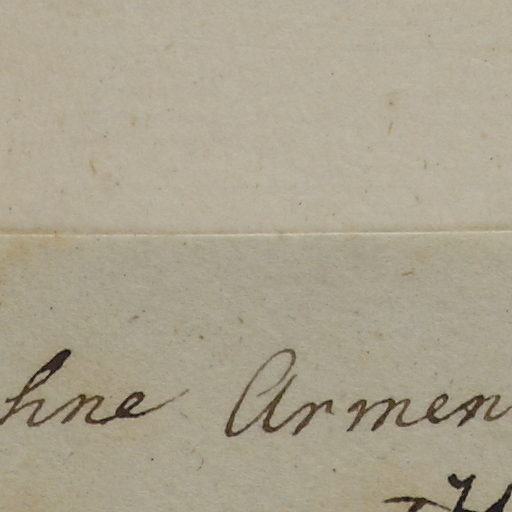 hne Armen